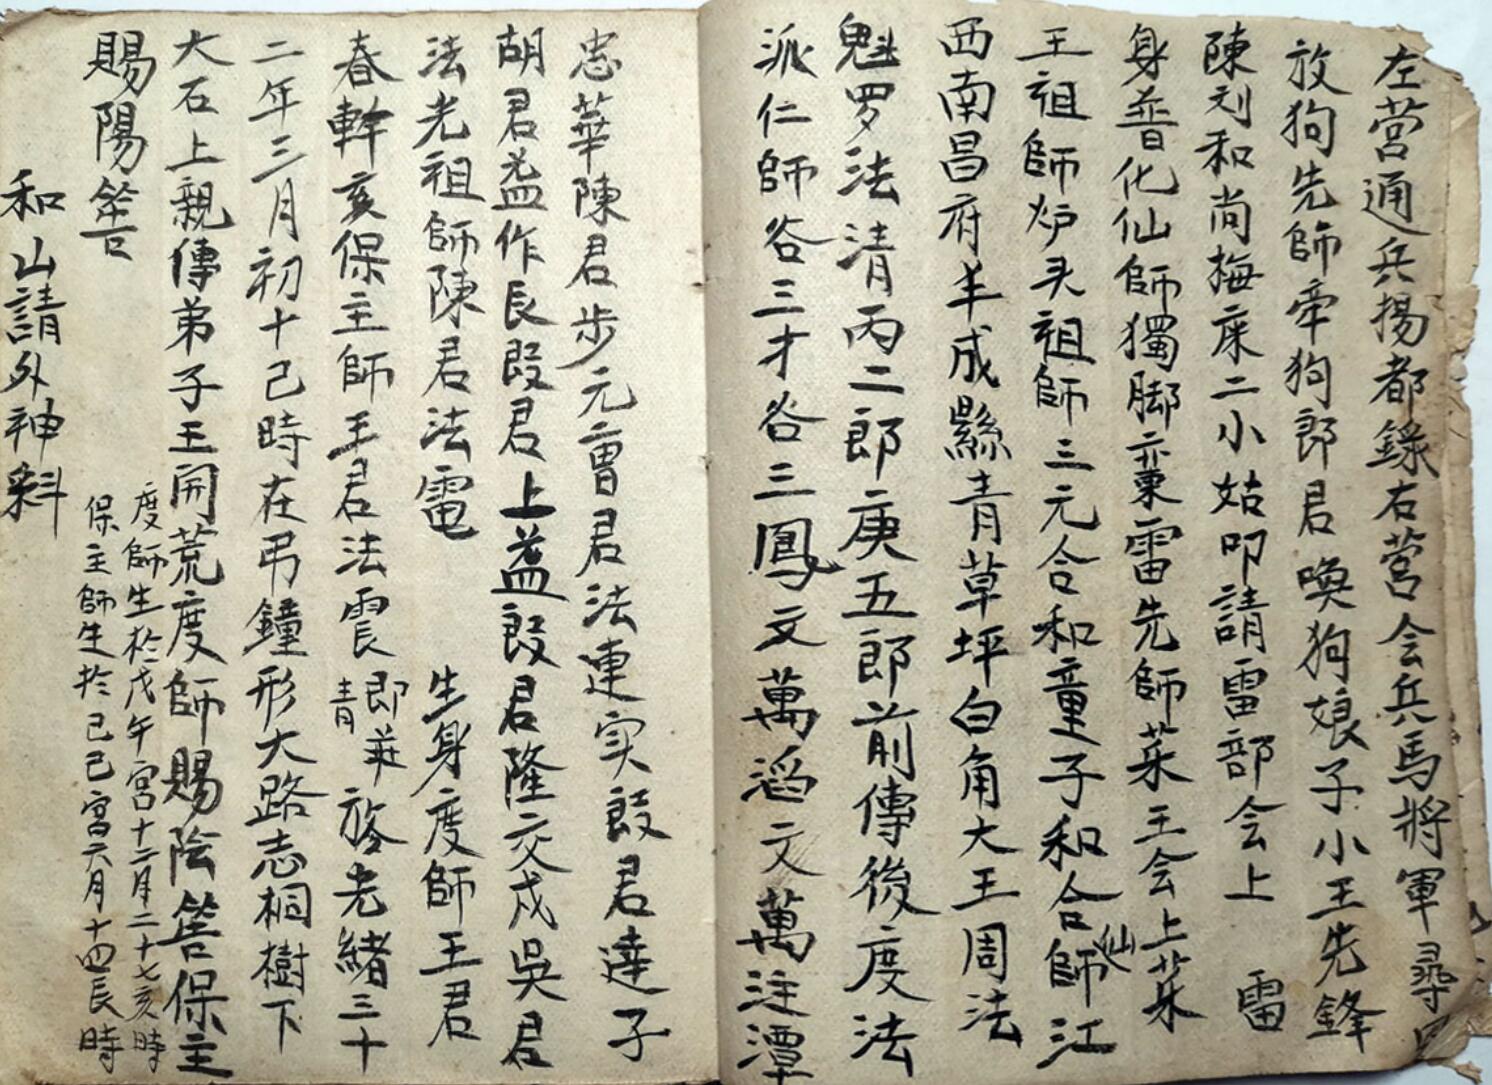 左营通兵揚都錄右营会兵馬將軍尋
放狗先師牵狗郎君喚狗娘子小王先鋒
陳刘和尚梅床二小姑叩請雷部会上 雷
身普化仙師獨脚雷先師菜王会上菜
王祖師炉头祖師三元合和童子和合仙師江
西南昌府羊成縣青草坪白角大王周法
魁罗法清丙二郎庚五郎前傳後度法
派仁師谷三才谷三鳳文萬滔文萬注潭
忠華陳君步元曹君法連实段君達子
胡君益作长段君上益段君隆交戍吳君
法光祖師陳君法電 生身度師王君
春幹亥保主師王君法震 即華青 於光緒三十
二年三月初十己時在弔鐘形大路志桐樹下
大石上親傳弟子王開荒度師賜陰筶保主
賜陽筶
度師生於戊午宮十二月二十七亥時
保主師生於己巳宮六月十四辰時
和山請外神料